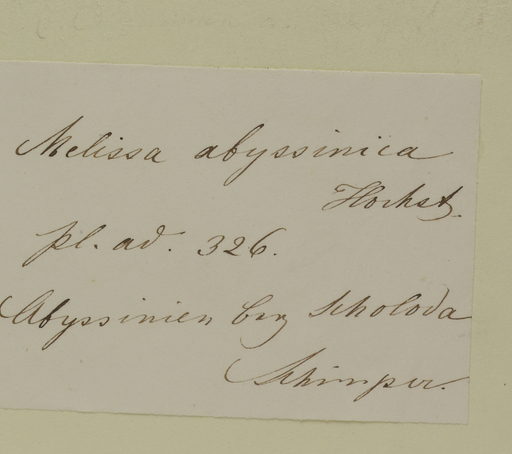 Melissa abyssinica
Hochst.
pl. ad. 326.
Abyssinien berg Scholoda
Schimper.